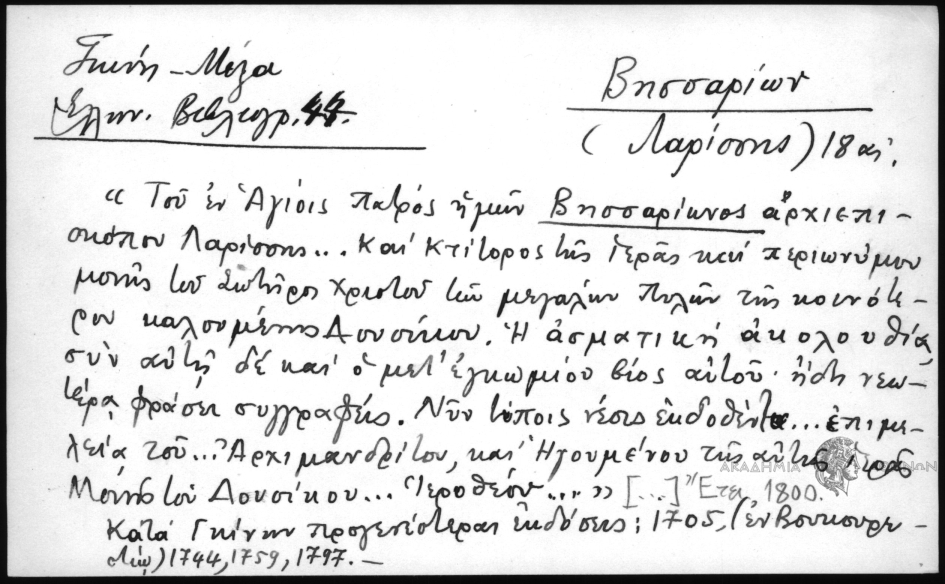 Γκίνη - Μέξα
Ἑλλην. Βιβλιογρ. 44.
Βησσαρίων
(Λαρίσσης) 18 αἰ.
"Τοῦ ἐν Ἁγίοις Πατρός ἡμῶν Βησσαρίωνος ἀρχιεπι-
σκόπου Λαρίσσης... καί κτίτορος τῆς ἱερᾶς καί περιωνύμου
μονῆς τοῦ Σωτῆρος Χριστοῦ τῶν μεγάλων Πυλῶν τῆς κοινότε-
ρον καλουμένης Δουσίκου. Ἡ ἀσματική ἀκολουθία,
σύν αὐτῇ δέ καί ὁ μετ' ἐγκωμίου βίος αὐτοῦ· ἤδη νεω-
τέρᾳ φράσει συγγραφείς. Νῦν τύποις νέοις ἐκδοθέντα... ἐπιμε-
λείᾳ τοῦ... Ἀρχιμανδρίτου, καί Ἡγουμένου τῆς αὐτῆς ἱερᾶς
Μονῆς τοῦ Δουσίκου... Ἱεροθέου..." [...] Ἔτει, 1800.
ΑΚΑΔΗΜΙΑ ΑΘΗΝΩΝ
Κατά Γκίνην προγενέστεραι ἐκδόσεις: 1705, (ἐν Βουκουρε-
στίῳ) 1744, 1759, 1797. —